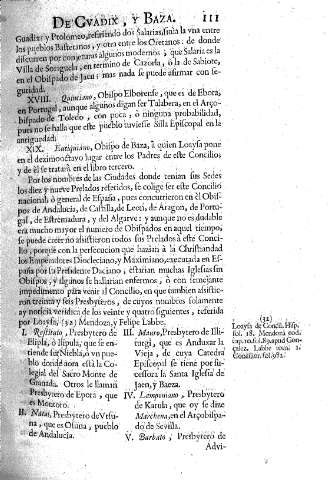 DE GVADIX, Y BAZA. 111
Guadix y Ptolomeo, refiriendo dos Salarias, una la vna entre
los pueblos Bastetanos, y otra entre los Oretanos: de donde
discurren por conjeturas algunos modernos; que Salaria es la
Villa de Soriguela, en termino de Cazorla, ò la de Sabiote,
en el Obispado de Jaen: mas nada se puede afirmar con se-
guridad.
XVIII. Quinciano, Obispo Elborense, que es de Ebora,
en Portugal, aunque algunos digan ser Talabera, en el Arço-
bispado de Toledo, con poca, ò ninguna probabilidad,
pues no se halla que este pueblo tuviesse Silla Episcopal en la
antiguedad.
XIX. Eutiquiano, Obispo de Baza, à quien Loaysa pone
en el dezimoctavo lugar entre los Padres de este Concilio;
y de él se tratarà en el libro tercero.
Por los nombres de las Ciudades donde tenian sus Sedes
los diez y nueve Prelados referidos, se colige ser este Concilio
nacional, ò general de España, pues concurrieron en él Obis-
pos de Andalucia, de Castilla, de Leon, de Aragon, de Portu-
gal, de Estremadura, y del Algarve: y aunque no es dudable
era mucho mayor el numero de Obispados en aquel tiempo,
se puede creer no assistieron todos sus Prelados à este Conci-
lio, porque con la persecucion que hazian à la Christiandad
los Emperadores Diocleciano, y Maximiano, executada en Es-
paña por su Presidente Daciano, estarian muchas Iglesias sin
Obispos, y algunos se hallarian enfermos, ò con semejante
impedimento para venir al Concilio, en que tambien assistie-
ron treinta y seis Presbyteros, de cuyos nombres solamente
ay noticia veridica de los veinte y quatro siguientes, referida
por Loaysa, (32) Mendoza, y Felipe Labbe.
I. Restituto, Presbytero de
Elipla, ò Ilipula, que se en-
tiende ser Niebla, ò vn pue-
blo donde aora està la Co-
legial del Sacro Monte de
Granada. Otros le llaman
Presbytero de Epora, que
es Montoro.
II. Natal, Presbytero de Vrsu-
na, que es Osuna, pueblo
de Andalucia.
III. Mauro, Presbytero de Illi-
turgi, que es Anduxar la
Vieja, de cuya Catedra
Episcopal se tiene por su-
cessora la Santa Iglesia de
Jaen, y Baeza.
IV. Lamponiano, Presbytero
de Karula, que oy se dize
Marchena, en el Arçobispa-
do de Sevilla.
V. Barbato, Presbytero de
Advi-
(32)
Loaysa de Concil. Hisp.
fol. 18. Mendoza eod.
Labbe tom. 1.
Concilior. fol. 982.